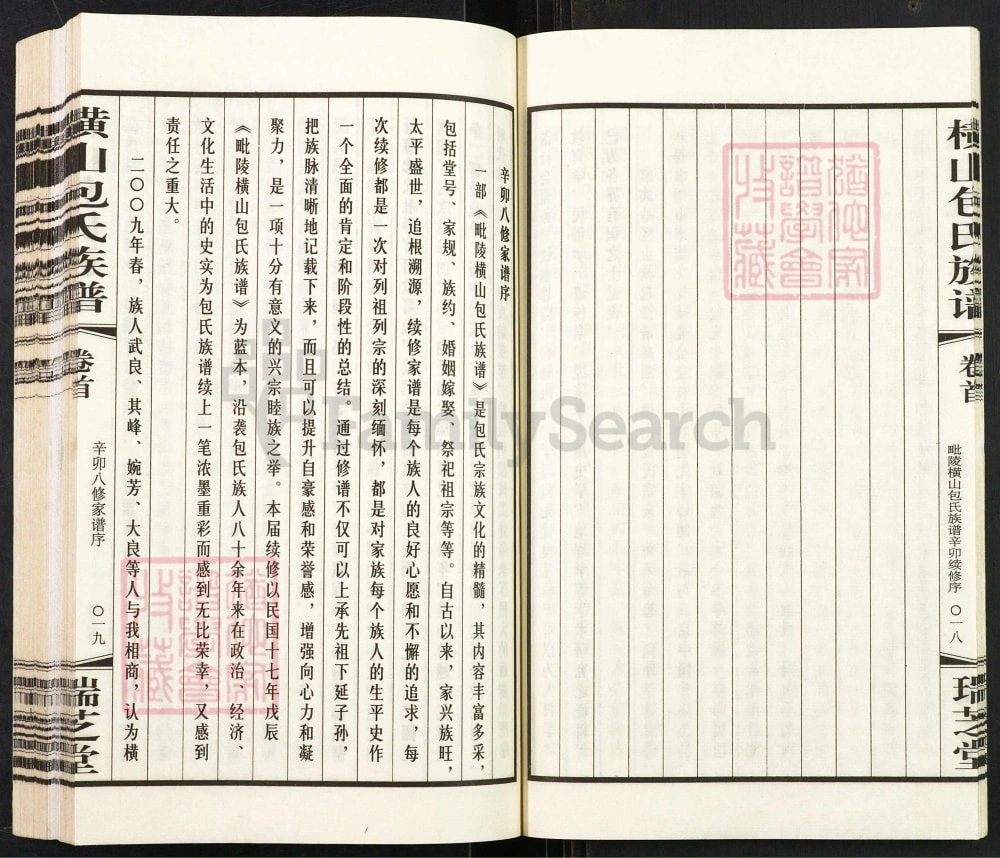 横山包氏族谱
卷首
毗陵横山包氏族谱辛卯续修序
〇一八
瑞芝堂
猶他家
譜學會
收藏
辛卯八修家谱序
一部《毗陵横山包氏族谱》是包氏宗族文化的精髓，其内容丰富多采，
包括堂号、家规、族约、婚姻嫁娶、祭祀祖宗等等。自古以来，家兴族旺，
太平盛世，追根溯源，续修家谱是每个族人的良好心愿和不懈的追求，每
次续修都是一次对列祖列宗的深刻缅怀，都是对家族每个族人的生平史作
一个全面的肯定和阶段性的总结。通过修谱不仅可以上承先祖下延子孙，
把族脉清晰地记载下来，而且可以提升自豪感和荣誉感，增强向心力和凝
聚力，是一项十分有意义的兴宗睦族之举。本届续修以民国十七年戊辰
《毗陵横山包氏族谱》为蓝本，沿袭包氏族人八十余年来在政治、经济、
文化生活中的史实为包氏族谱续上一笔浓墨重彩而感到无比荣幸，又感到
责任之重大。
二〇〇九年春，族人武良、其峰、婉芳、大良等人与我相商，认为横
横山包氏族谱
卷首
辛卯八修家谱序
〇一九
瑞芝堂
猶他家
譜學會
收藏
FamilySearch